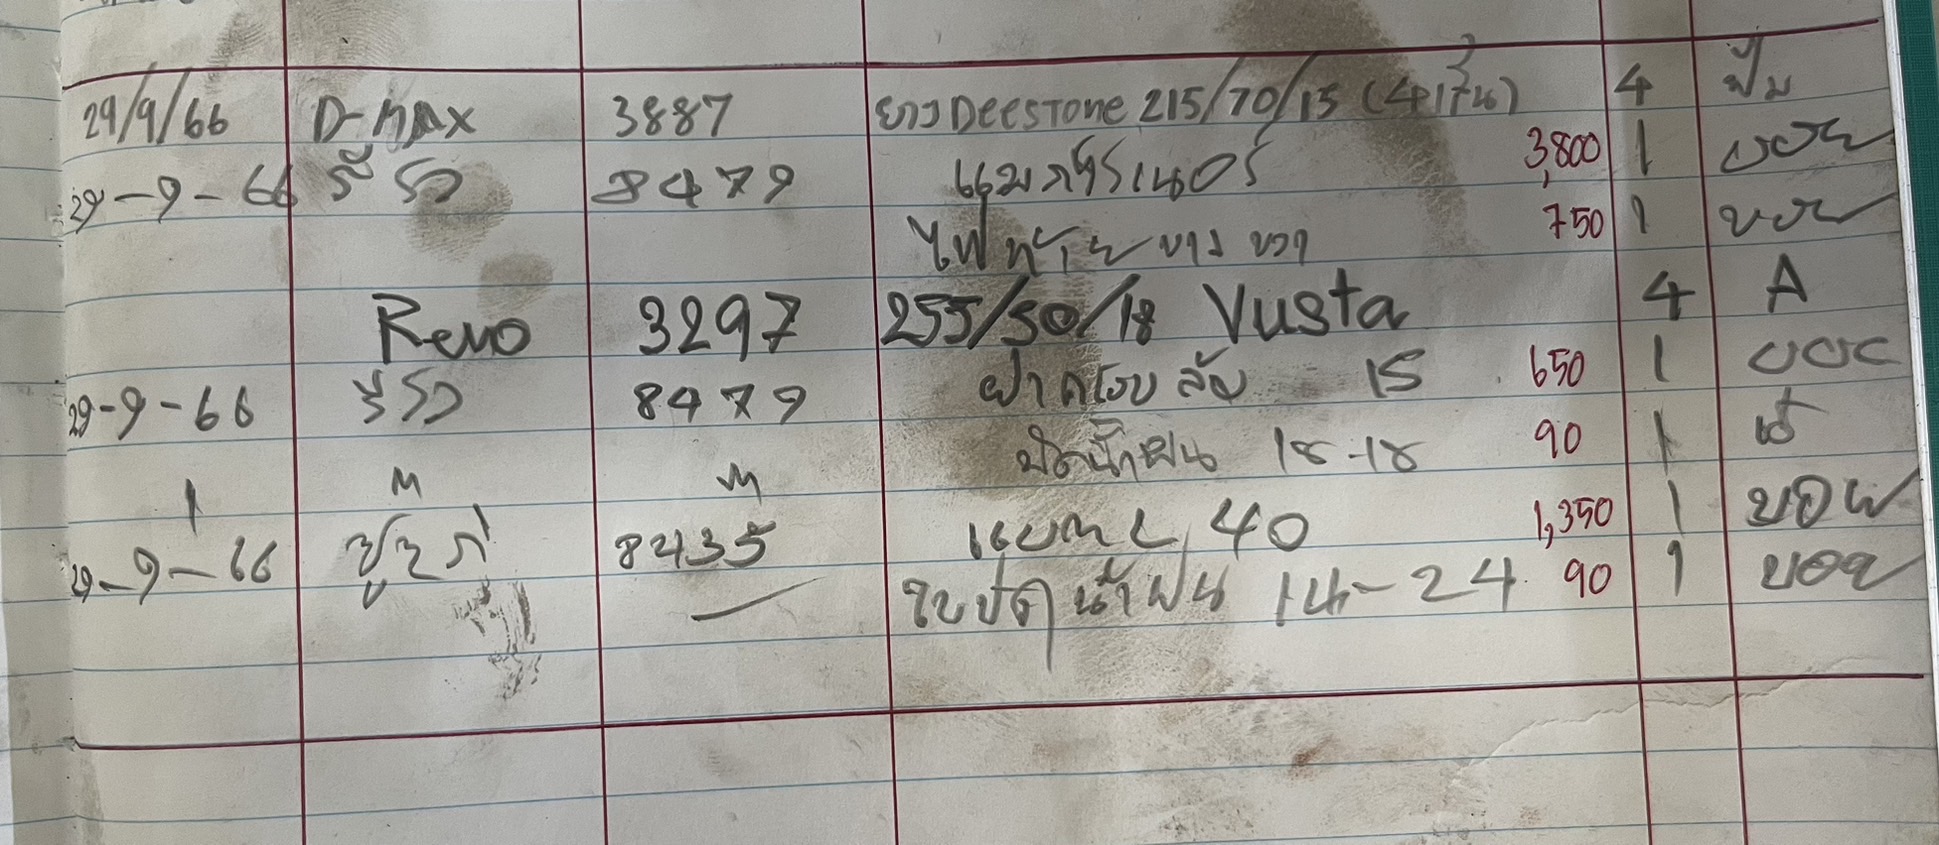 29/9/66 D-max 3887 ยาง Deestone 215/70/15 (4เส้น) 4 ปั๊ม
29-9-66 รีโว 8479 3,800 1 บอย
ไฟท้าย ขวา 750 1 บอย
Revo 3297 255/50/18 Vusta 4 A
29-9-66 รีโว 8479 ฝาครอบล้อ 15 650 1 บอย
ปัดน้ำฝน 18-18 90 1
29-9-66 8435 แบต 40 1,350 1 บอย
ใบปัดน้ำฝน 14-24 90 1 บอย